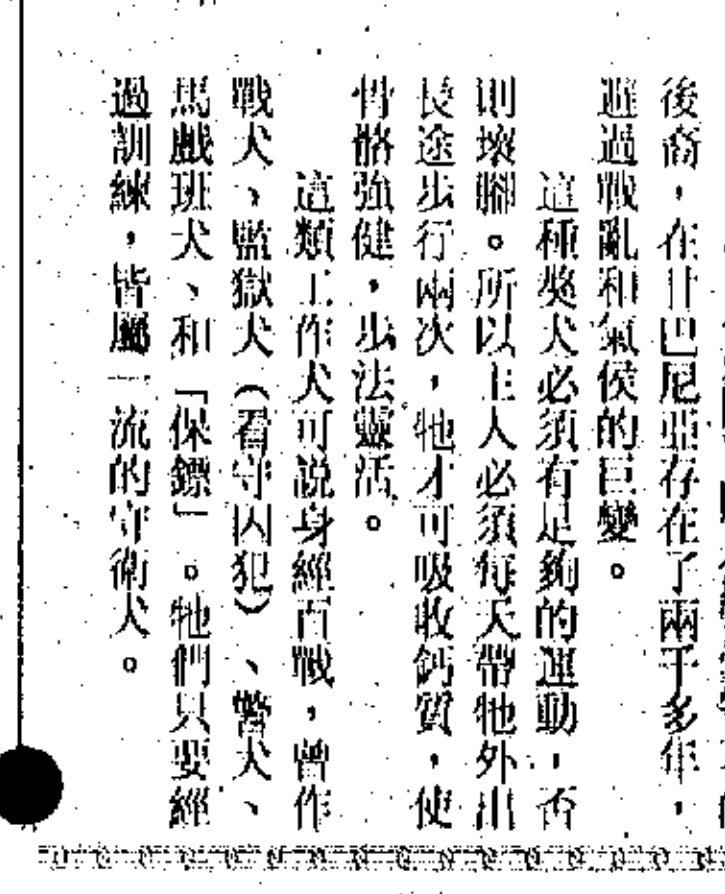 後裔，在甘巴尼亞存在了兩千多年，
避過戰亂和氣侯的巨變。
這種獒犬必須有足夠的運動，否
則壞腳。所以主人必須每天帶牠外出
長途步行兩次，牠才可吸收鈣質，使
骨骼強健，步法靈活。
這類工作犬可說身經百戰，曾作
戰犬、監獄犬（看守囚犯）、警犬、
馬戲班犬、和「保鏢」。牠們只要經
過訓練，皆屬一流的守衛犬。